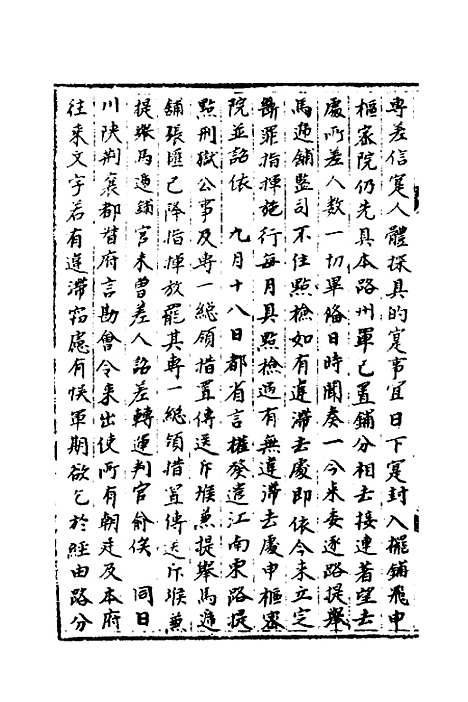 専差信寔人體探具的寔事宜日下寔封入擺鋪飛申
樞宻院仍先具本路州軍已置鋪分相去接連著望去
處所差人数一切畢備日時聞奏一今来委逐路提舉
馬遞舖監司不住點檢如有違滯去處即依今来立定
斷罪指揮施行每月具點檢過有無違滯去處申樞宻
院並詔依　九月十八日都省言權發遣江南東路提
點刑獄公事及専一緫領措置傳送斥堠兼提舉馬遞
舖張匯已降指揮放罷其専一緫領措置傳送斥堠兼
提舉馬遞鋪官未曽差人詔差轉運判官俞俟　同日
川陜荆襄都督府言勘會今来出使所有朝廷及本府
往来文字若有違滯竊慮有悮軍期欲乞於經由路分